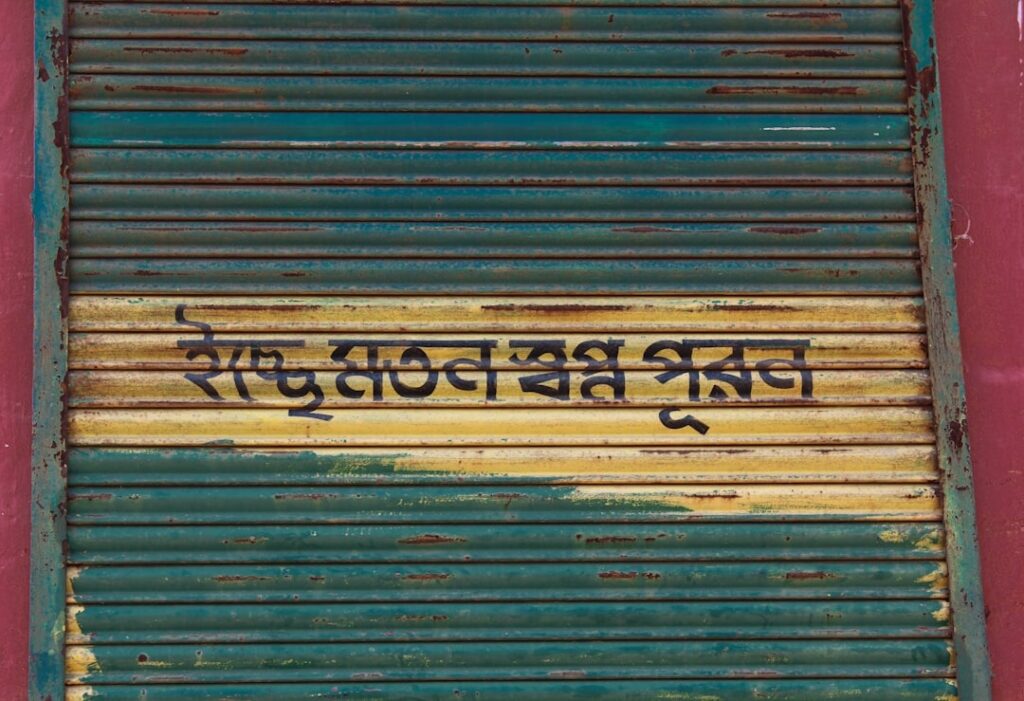 ইচ্ছে মতন স্বপ্ন পূরন